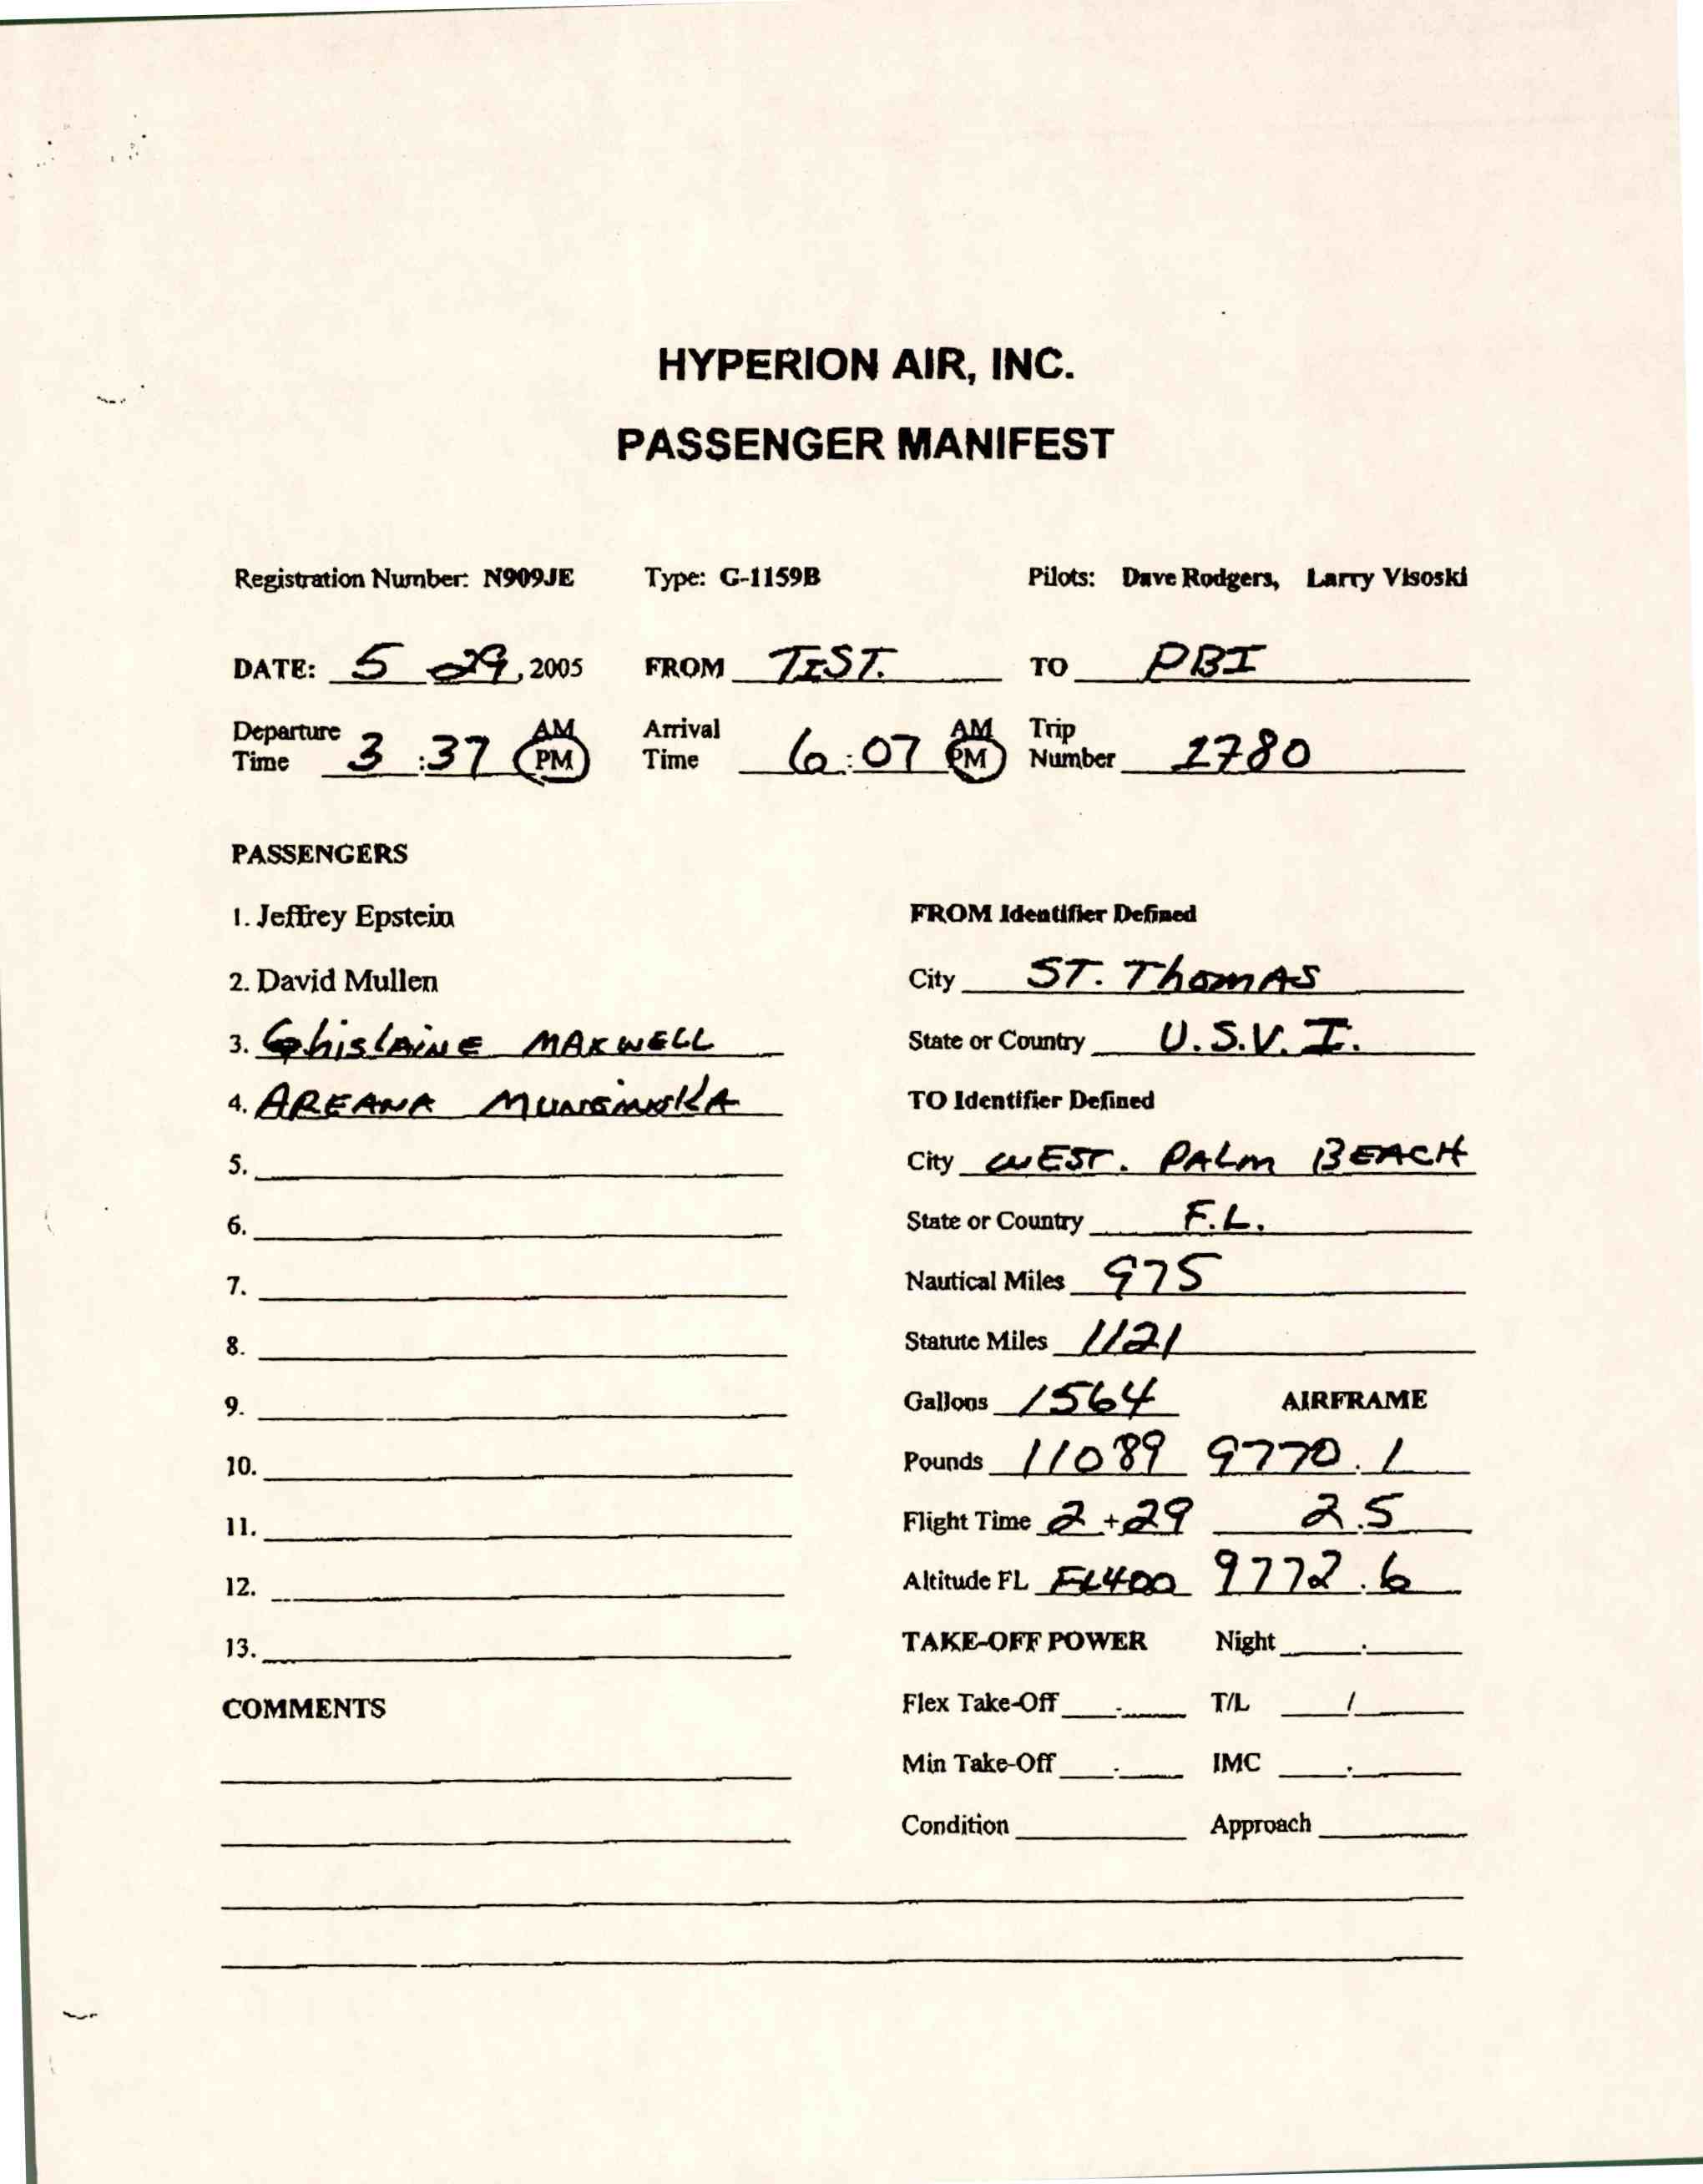 HYPERION AIR, INC.
PASSENGER MANIFEST
Registration Number: N909JE Type: G-1159B Pilots: Dave Rodgers, Larry Visoski
DATE: 5 - 29, 2005 FROM TIST. TO PBI
Departure Time 3:37 AM PM Arrival Time 6:07 AM PM Trip Number 1780
PASSENGERS
1. Jeffrey Epstein
2. David Mullen
3. Ghislaine MAXWELL
4. AREANA
5.
6.
7.
8.
9.
10.
11.
12.
13.
COMMENTS
FROM Identifier Defined
City ST. ThomAS
State or Country U.S.V.I.
TO Identifier Defined
City WEST. PALM BEACH
State or Country F.L.
Nautical Miles 975
Statute Miles 1121
Gallons 1564 AIRFRAME
Pounds 11089 9770.1
Flight Time 2+29 2.5
Altitude FL FL400 9772.6
TAKE-OFF POWER Night .
Flex Take-Off . T/L /
Min Take-Off . IMC .
Condition Approach